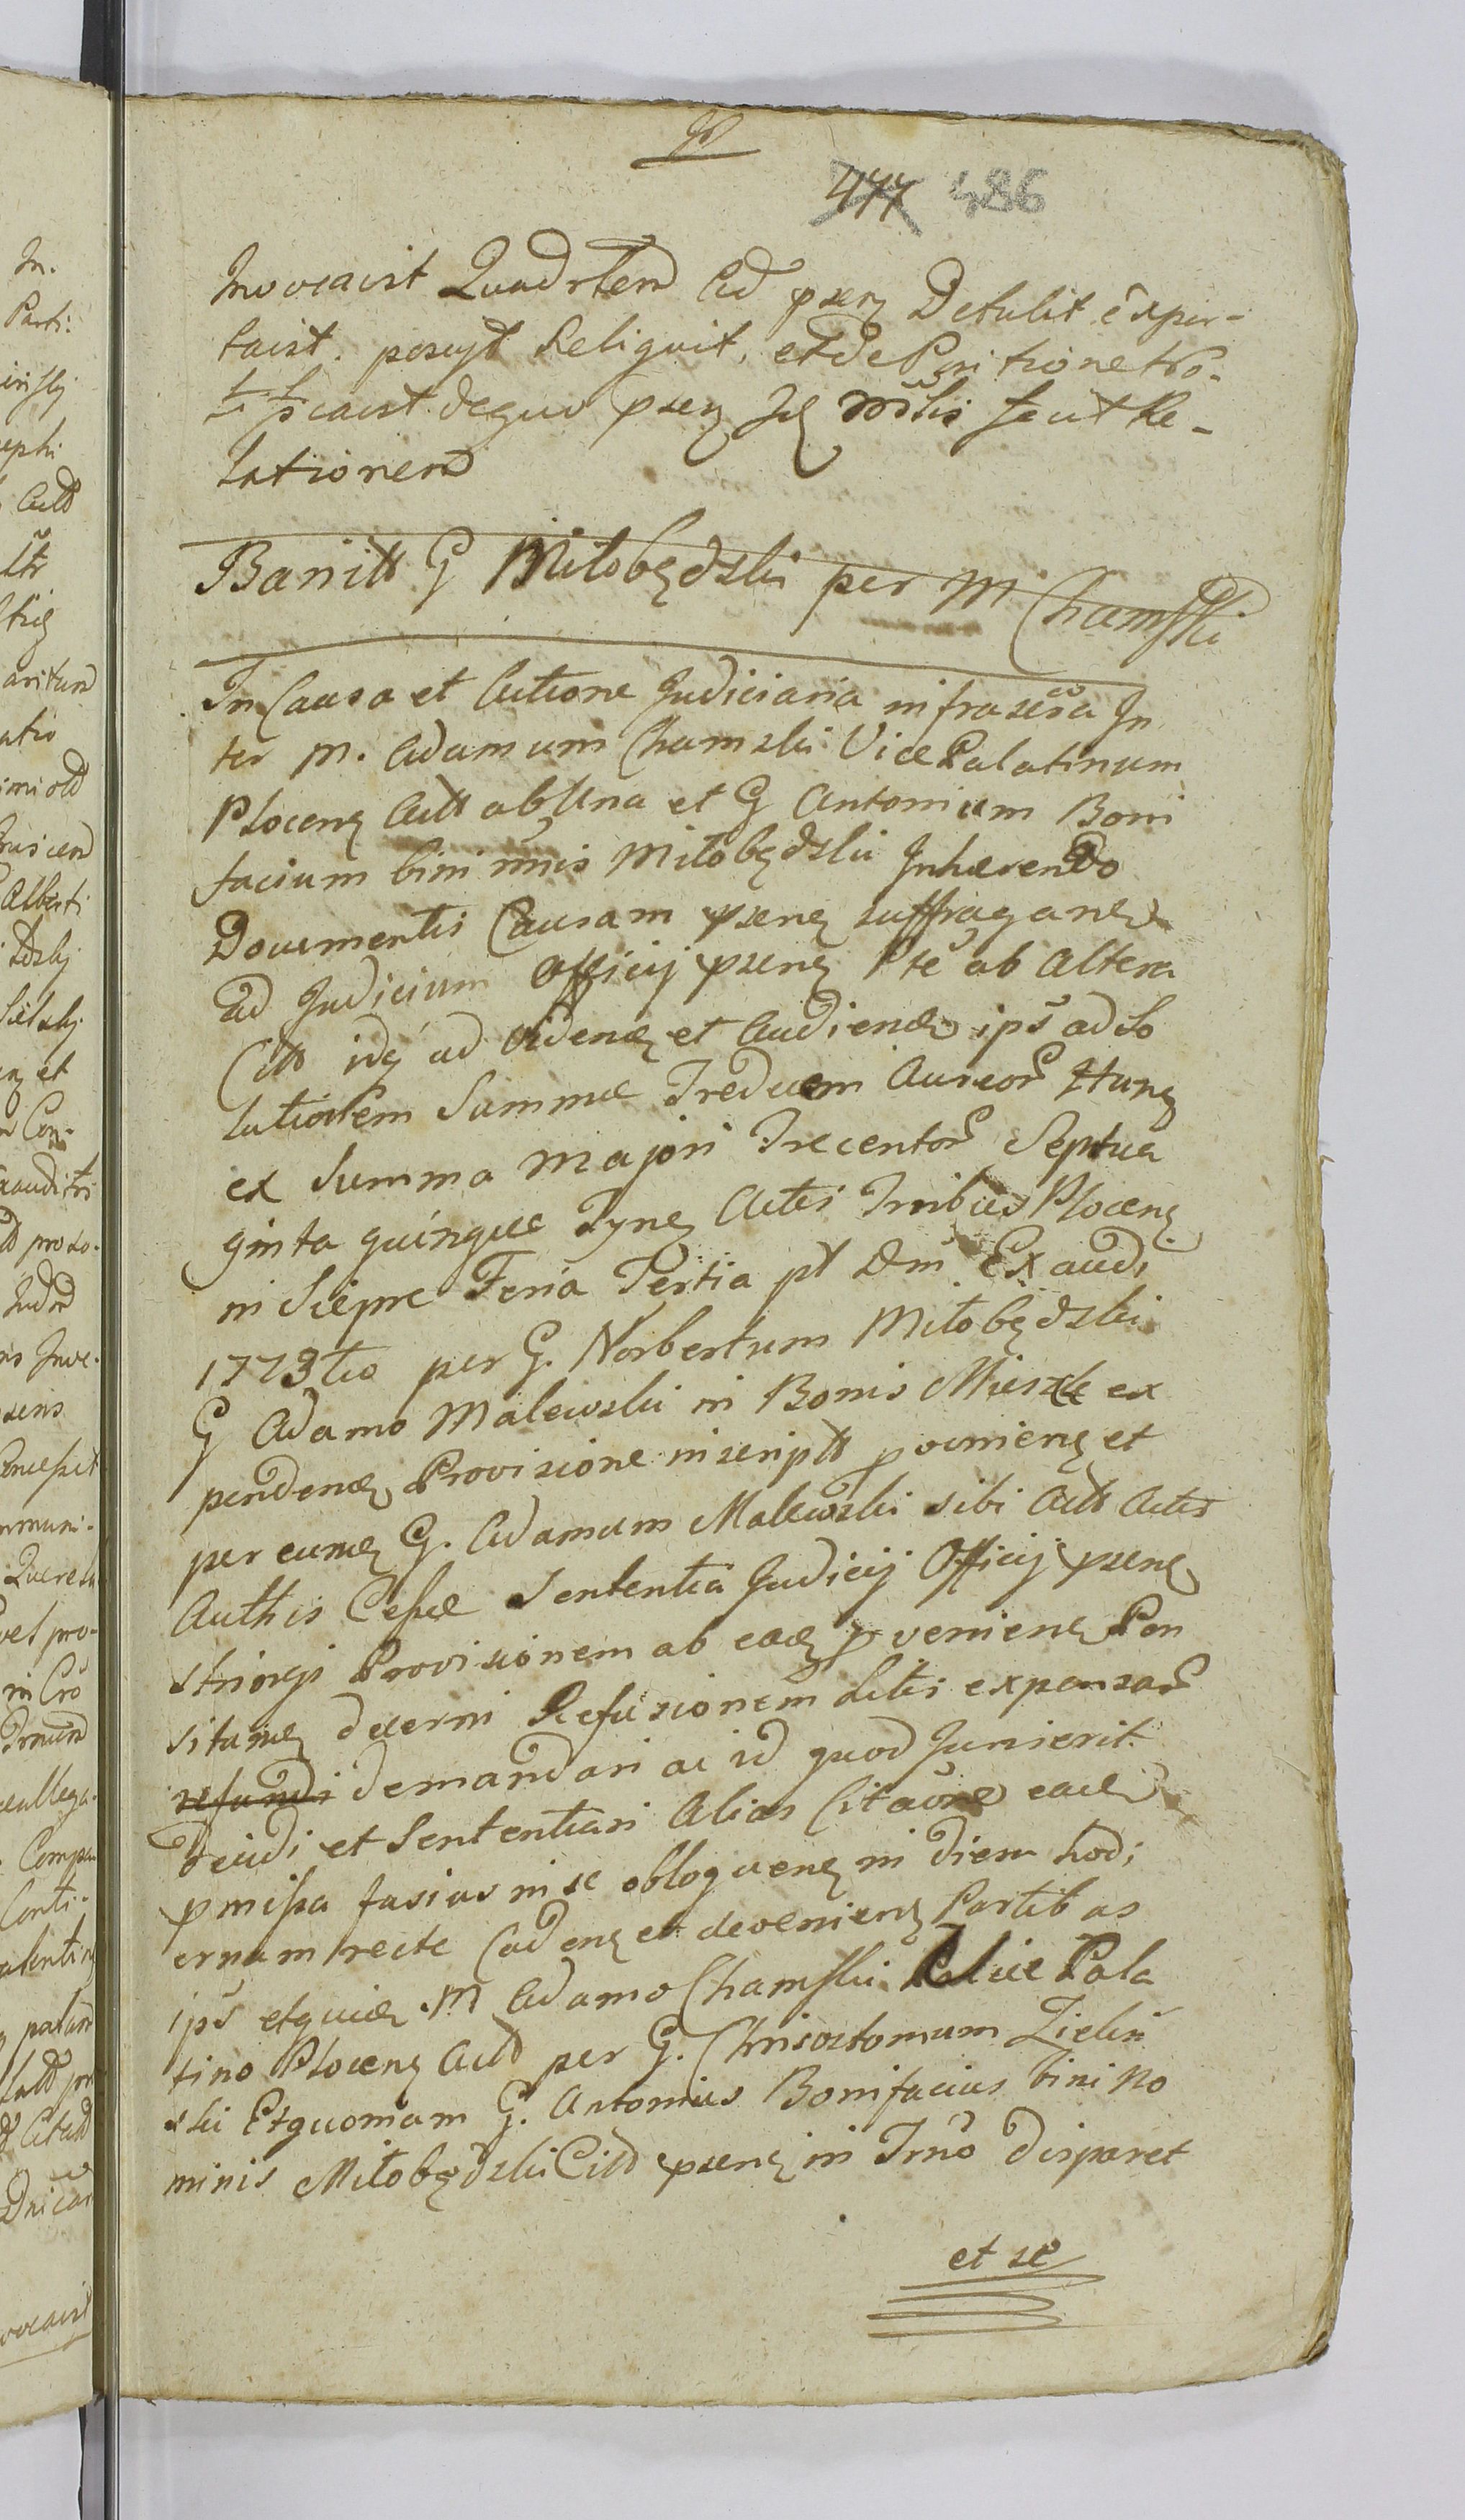 477 486
Invocavit Quadrtem Ad psens Detulit exper-
tavit. posuyt Reliquit, et de Positione pro-
ttscavit dequo psens Jd mslis fecit Re-
lationem
Banitt G Miłobędzki per M Chamski
In Causa et Actione Judiciaria infrascra In
ter M. Adamum Chamski Vice Palatinum
Plocens Actt ab Una et G Antonium Boni
facium bini nnis Miłobędzki Inhærendo
Documentis Causam psens suffragan
ad Judicium Officij psens Pte ab Altera
Citt idq ad Videnđ et Audienđ ips ad So
lutionem Summæ Treduem Aureor Hung
ex Summa Majori Trecentor Septua
ginta quinque Tynf Actis Tribus Plocens
in Siepre Feria Tertia pt Dm Exaudi
1773tio per G. Norbertum Miłobędzki
G Adamo Malewski in Bonis ex
pendenđ Provisione inscriptt provenienđ et
per eumđ G. Adamum Malewski sibi Actt Actis
Authis Cessæ Sententia Judicij Officij psens
stringi Provisionem ab eađ provenienđ Pen
sitanđ decerni Refusionem Litis expensar
refundi demandari ac id quod Junierit
decidi et Sententiari Alias Citaone eađ
pmissa fusius in se obloquens in diem hodi
ernam recte Cadens et devenienđ Partibus
ips etquiđ M Adamo Chamski Vice Pala
tino Plocens Actt per G. Chrisostomum Zieliń
ski Etquoniam G. Antonius Bonifacius bini no
minis Miłobędzki Citt psens in Trno disparet
et se